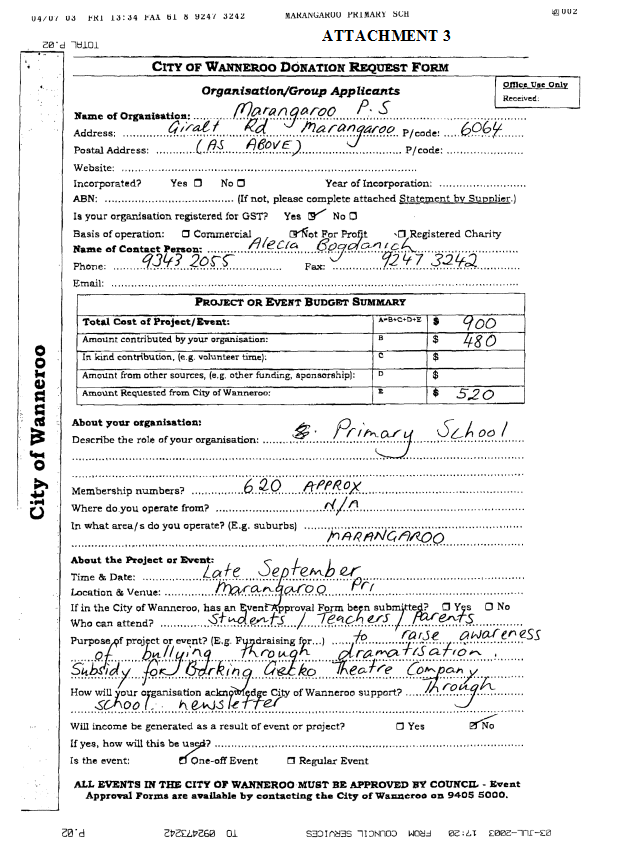 04/07 03 FRI 13:34 FAX 61 8 9247 3242 MARANGAROO PRIMARY SCH 002
ATTACHMENT 3
TOTAL P.02
CITY OF WANNEROO DONATION REQUEST FORM
Organisation/Group Applicants
Office Use Only
Received:
Name of Organisation: Marangaroo P.S
Address: Giralt Rd Marangaroo P/code: 6064
Postal Address: (AS ABOVE) P/code:
Website:
Incorporated? Yes No Year of Incorporation:
ABN: (If not, please complete attached Statement by Supplier.)
Is your organisation registered for GST? Yes No
Basis of operation: Commercial Not For Profit Registered Charity
Name of Contact Person: Alecia Bogdanich
Phone: 9343 2055 Fax: 9247 3242
Email:
PROJECT OR EVENT BUDGET SUMMARY
Total Cost of Project/Event: A=B+C+D+E $ 900
Amount contributed by your organisation: B $ 480
In kind contribution, (e.g. volunteer time): C $
Amount from other sources, (e.g. other funding, sponsorship): D $
Amount Requested from City of Wanneroo: E $ 520
City of Wanneroo
About your organisation:
Describe the role of your organisation: Primary School
Membership numbers? 620 APPROX
Where do you operate from? N/A
In what area/s do you operate? (E.g. suburbs)
MARANGAROO
About the Project or Event:
Time & Date: Late September
Location & Venue: Marangaroo Pri
If in the City of Wanneroo, has an Event Approval Form been submitted? Yes No
Who can attend? Students / Teachers / Parents
Purpose of project or event? (E.g. Fundraising for...) to raise awareness
of bullying through dramatisation.
Subsidy for Barking Gecko Theatre Company
How will your organisation acknowledge City of Wanneroo support? Through
school newsletter
Will income be generated as a result of event or project? Yes No
If yes, how will this be used?
Is the event: One-off Event Regular Event
ALL EVENTS IN THE CITY OF WANNEROO MUST BE APPROVED BY COUNCIL - Event
Approval Forms are available by contacting the City of Wanneroo on 9405 5000.
03-JUL-2003 17:20 FROM COUNCIL SERVICES TO 092473242 P.02